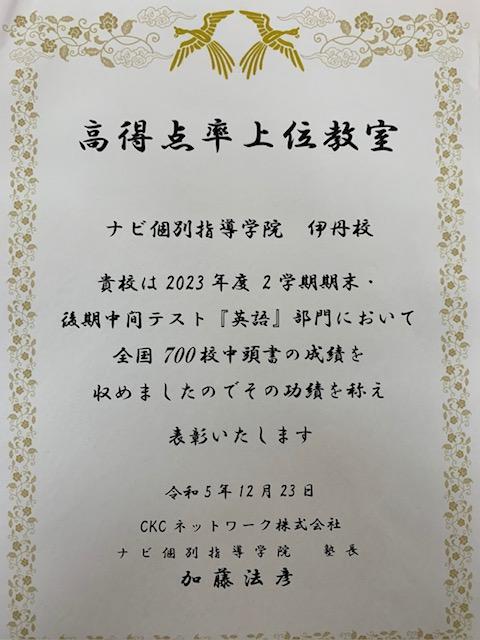 高得点率上位教室
ナビ個別指導学院 伊丹校
貴校は2023年度 2学期期末・
後期中間テスト『英語』部門において
全国700校中頭書の成績を
収めましたのでその功績を称え
表彰いたします
令和5年12月23日
CKCネットワーク株式会社
ナビ個別指導学院 塾長
加藤法彦